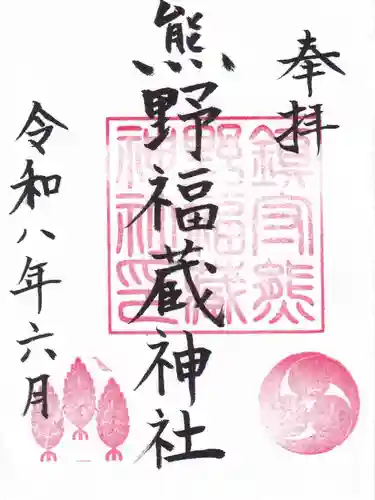 奉拝
熊野福蔵神社
令和八年六月
鎮守熊
野福蔵
神社印